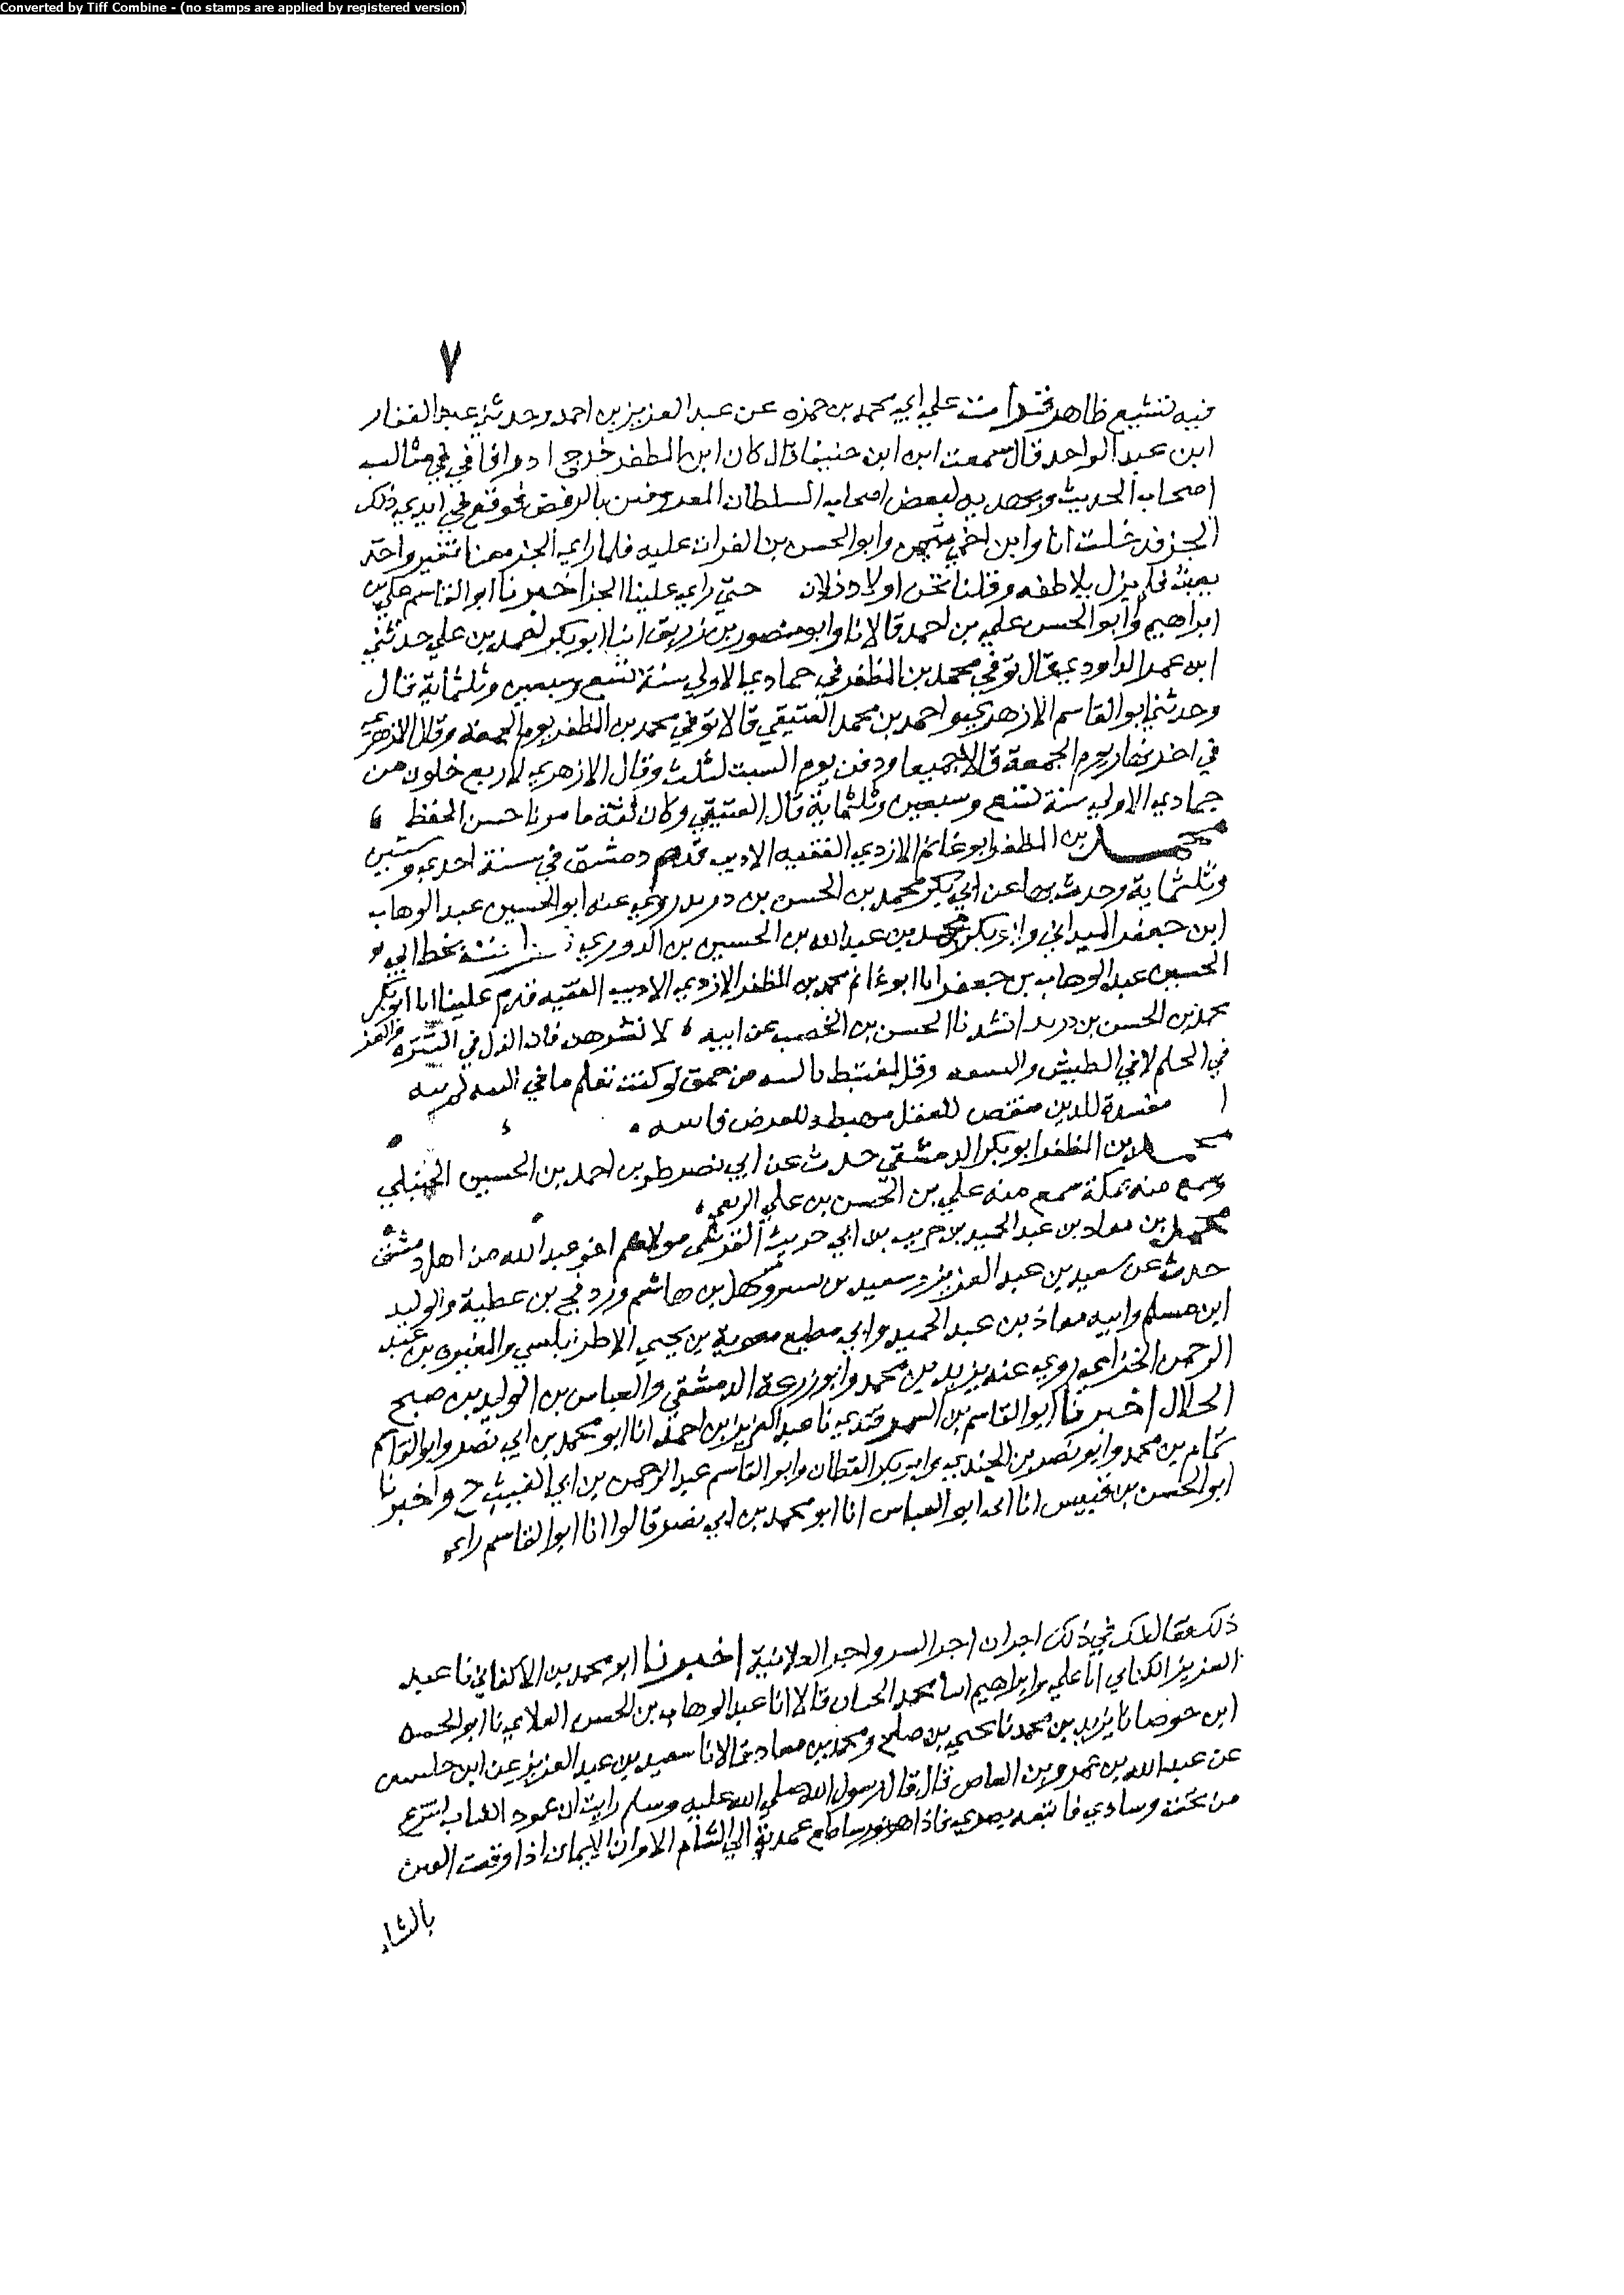 Converted by Tiff Combine - (no stamps are applied by registered version)
٧
فيه تشيع ظاهر قرات علي ابي محمد بن حمزه عن عبد العزيز بن احمد وحدثني عبد الغفار
ابن عبد الواحد قال سمعت ابن حنيفا قال كان ابن المظفر خرج اوراقا في مثالب
اصحاب الحديث ويهديه لبعض اصحاب السلطان المعروفين بالرفض فوقع في ايدي ذلك
الجز فدخلت انا وابن اخي وابو الحسن بن الفرات عليه فلما راي الجز معنا تغير واخذ
فلم يزل يلاطفه وقلنا نحن اولاد حتي راي علينا الجز اخبرنا ابو القاسم علي بن
ابراهيم وابو الحسن علي بن احمد قالا نا وابو منصور بن زريق انا ابو بكر احمد بن علي حدثني
ابن عمر الداودي قال توفي محمد بن المظفر في جمادي الاولي سنة تسع وسبعين وثلثماية قال
وحدثني ابو القاسم الازهري واحمد بن محمد العتيقي قالا توفي محمد بن المظفر يوم الجمعه وقال الازهري
في اخر نهار يوم الجمعة قالا جميعا ودفن يوم السبت لثلث وقال الازهري لاربع خلون من
جمادي الاولي سنة تسع وسبعين وثلثماية قال العتيقي وكان ثقة مامونا حسن الحفظ
محمد بن المظفر ابو غانم الازدي الفقيه الاديب قدم دمشق في سنة احدي وستين
وثلثماية وحدث بها عن ابي بكر محمد بن الحسن بن دريد روي عنه ابو الحسين عبد الوهاب
ابن جعفر الميداني وابو بكر محمد بن عبد الله بن الحسين بن الدوري بخط ابي
الحسين عبد الوهاب بن جعفر انا ابو غانم محمد بن المظفر الازدي الاديب الفقيه قدم علينا انا ابو بكر
محمد بن الحسن بن دريد انشدنا الحسن بن الخضر عن ابيه لا تشرهن فان الذل في الشره والعز
في الحلم لا في الطيش والسفه وقل لمغتبط بالتيه من حمق لو كنت تعلم ما في التيه لم تته
مفسدة للدين منقص للعقل مهبط وللعرض
محمد بن المظفر ابو بكر الدمشقي حدث عن ابي نصر بن احمد بن الحسين الحنبلي
وسمع منه بمكة سمع منه علي بن الحسن بن علي الربعي
محمد بن معاذ بن عبد الحميد بن حريث بن ابي حريث القرشي مولاهم اخو عبد الله من اهل دمشق
حدث عن سعيد بن عبد العزيز وسعيد بن بشير وسهل بن هاشم ورديح بن عطية والوليد
ابن مسلم وابيه معاذ بن عبد الحميد وابي مطيع معوية بن يحيي الاطرابلسي والمغيره بن عبد
الرحمن الخزامي روي عنه يزيد بن محمد وابو زرعة الدمشقي والعباس بن الوليد بن صبح
الخلال اخبرنا ابو القاسم بن السمرقندي نا عبد العزيز بن احمد انا ابو محمد بن ابي نصر وابو القاسم
تمام بن محمد وابو نصر بن الجندي وابو بكر القطان وابو القاسم عبد الرحمن بن ابي ح واخبرنا
ابو الحسن بن قبيس انا ابي ابو العباس انا ابو محمد بن ابي نصر قالوا انا ابو القاسم راي
ذلك فقال لك في ذلك اجران اجر السر واجر العلانية اخبرنا ابو محمد بن الاكفاني نا عبد
العزيز الكتاني انا علي وابراهيم ابنا محمد قالا انا عبد الوهاب بن الحسن الكلابي نا ابو الحسن
ابن جوصا نا يزيد بن محمد نا يحيي بن صالح ومحمد بن معاذ قالا نا سعيد بن عبد العزيز عن ابن حلبس
عن عبد الله بن عمرو بن العاص قال قال رسول الله صلي الله عليه وسلم رايت ان عمود الكتاب انتزع
من تحت وسادي فاتبعته بصري فاذا هو نور ساطع عمد به الي الشام الا وان الايمان اذا وقعت الفتن
بالشام